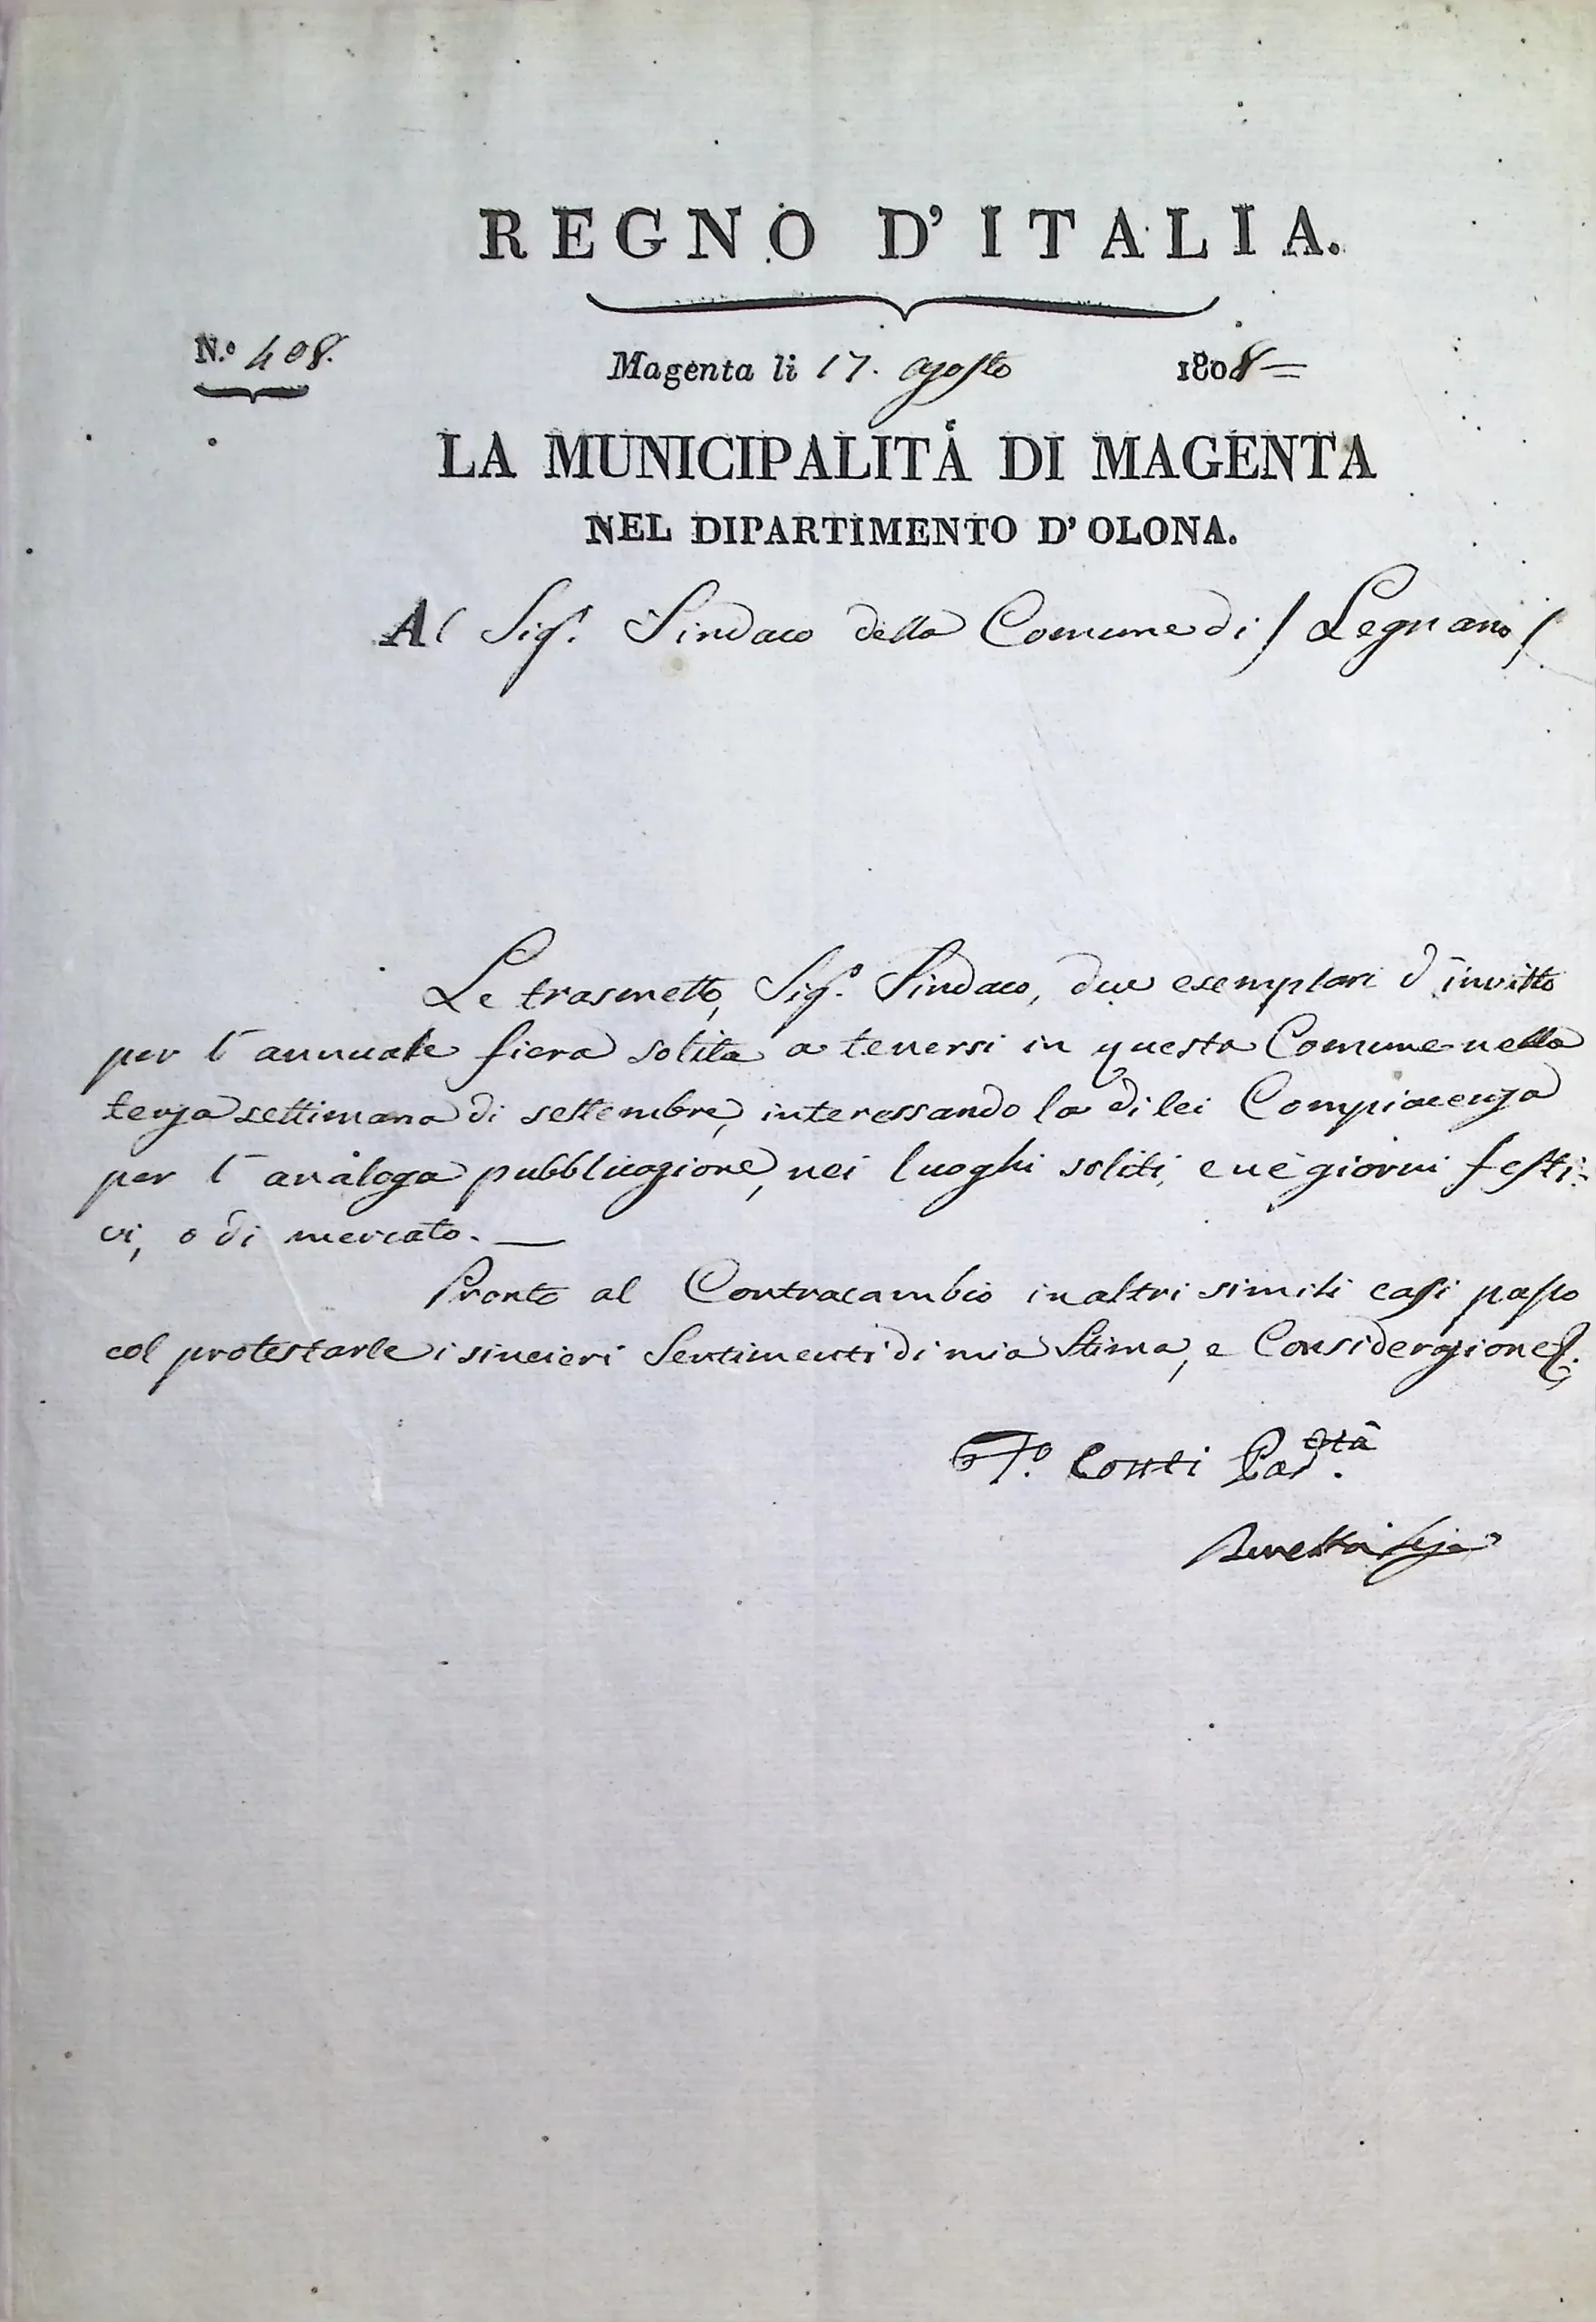 REGNO D'ITALIA.
N.° 408.
Magenta li 17. agosto 1808=
LA MUNICIPALITÀ DI MAGENTA
NEL DIPARTIMENTO D'OLONA.
Al Sigr. Sindaco della Comune di / Legnano /
Le trasmetto, Sigr. Sindaco, due esemplari d'invitto
per l'annuale fiera solita a tenersi in questa Comune nella
terza settimana di settembre, interessando la di lei Compiacenza
per l'analoga pubblicazione, nei luoghi soliti, e ne' giorni festi:
vi, o di mercato. —
Pronto al Contracambio in altri simili casi passo
col protestarle i sincieri Sentimenti di mia Stima, e Considerazione
Conti